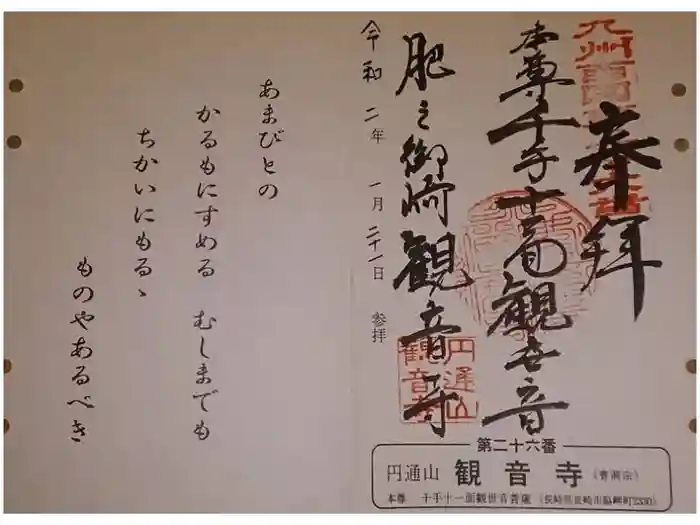 奉拝
本尊千手十一面観世音
肥之御崎観音寺
令和二年 一月二十一日 参拝
あまびとの
かるもにすめる むしまでも
ちかいにもるゝ
ものやあるべき
円通山
観音寺
第二十六番
円通山 観音寺 (曹洞宗)
本尊 千手十一面観世音菩薩 (長崎県長崎市脇岬町2330)